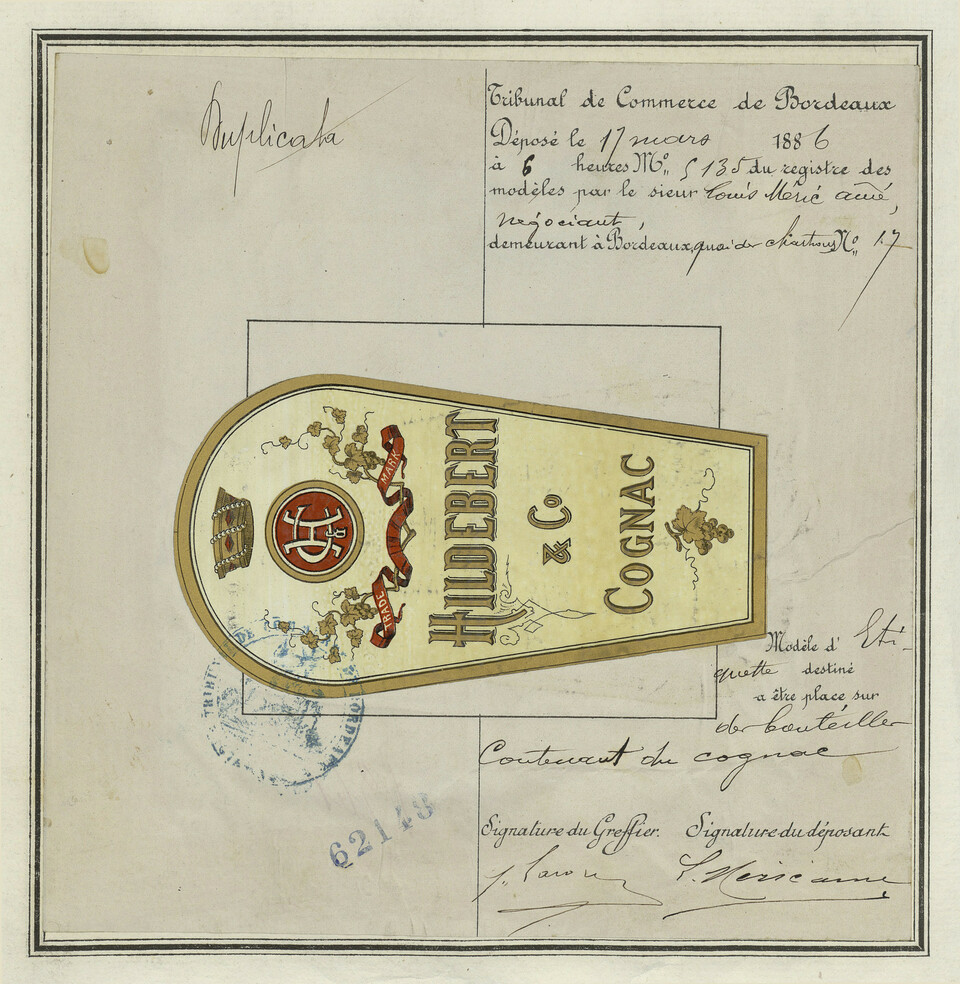 Duplicata
Tribunal de Commerce de Bordeaux
Déposé le 17 mars 1886
à 6 heures No 5135 du registre des
modèles par le sieur Louis Méric aîné,
négociant,
demeurant à Bordeaux, quai des Chartrons No 17
TRADE MARK
HILDEBERT
& Co
COGNAC
Modèle d' Eti-
quette destiné
a être place sur
des bouteilles
Contenant du cognac
BORDEAUX
62148
Signature du Greffier. Signature du déposant
L. Méric aîné